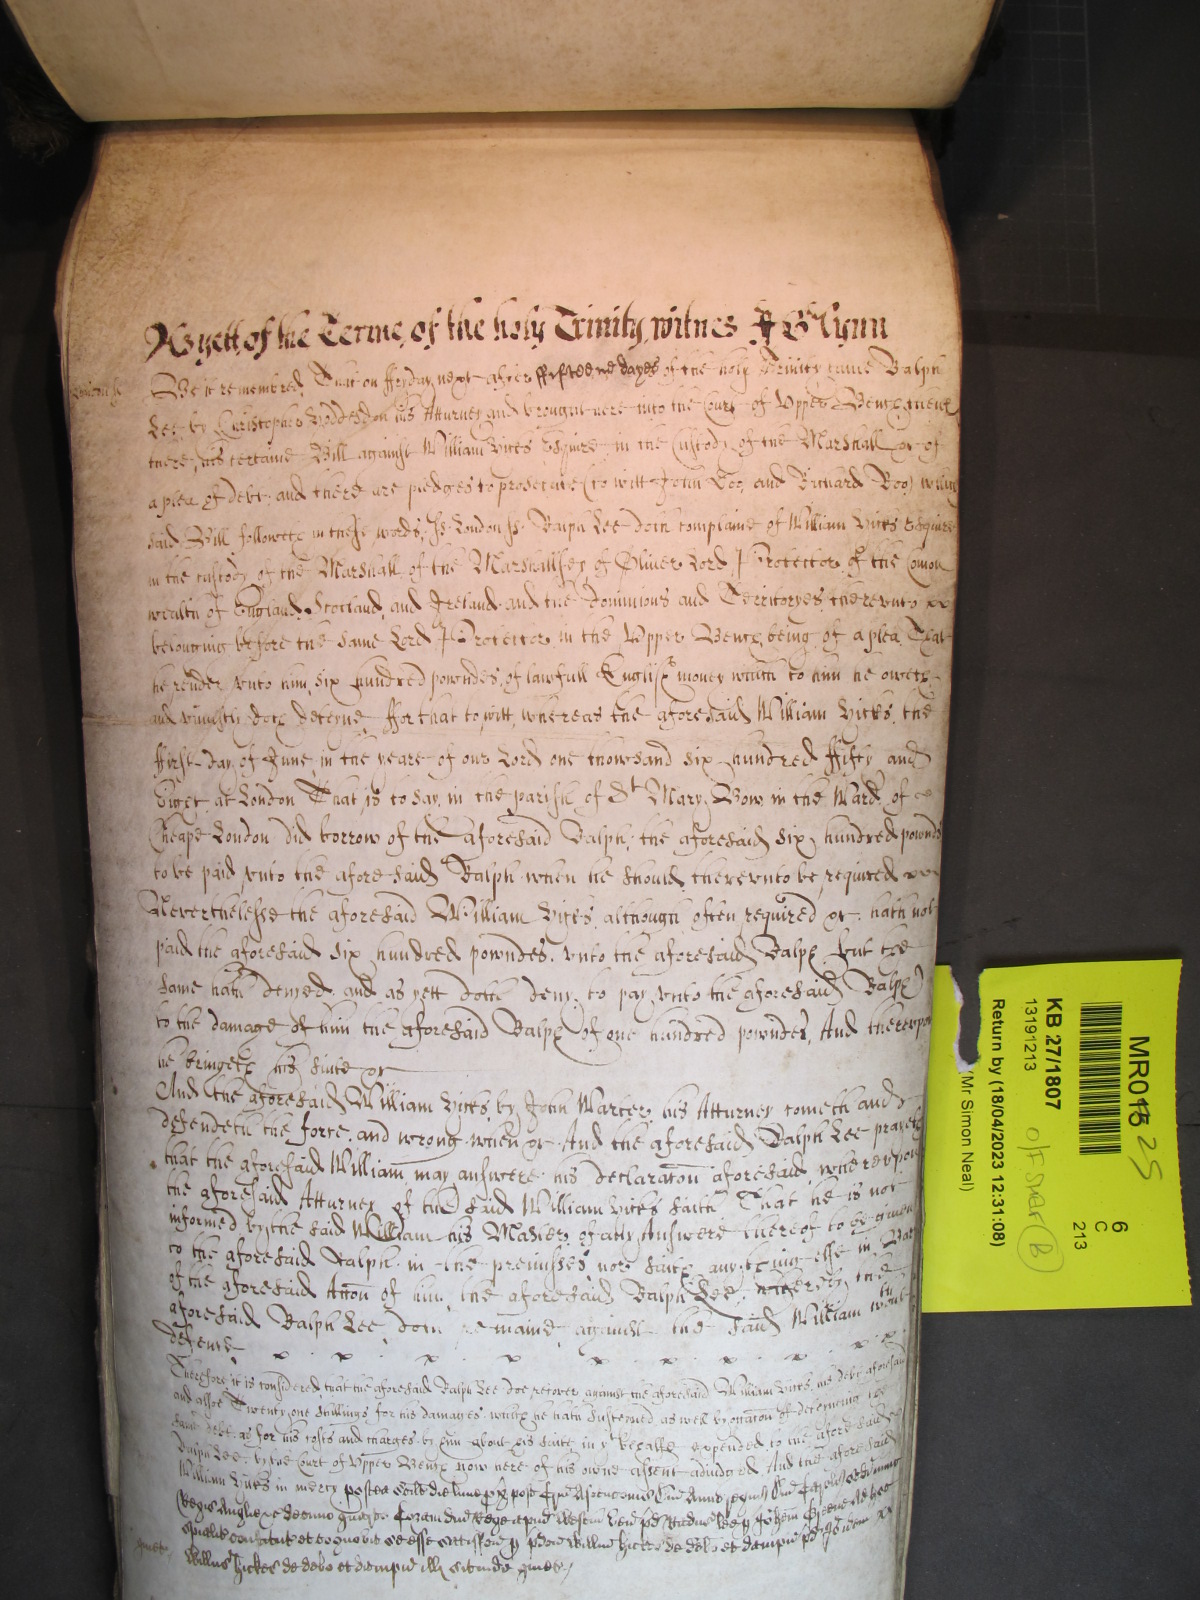 As yett of the Terme of the holy Trinity, witnes J Glynn
London ss Be it remembred That on ffryday next after ffifteene dayes of the holy Trinity came Ralph
Lee by Christopher Hoddesdon his Atturney and brought here into the Court of Upper Bench then
there, his certaine Bill against William Hicks Esquire in the Custody of the Marshall &c of
a plea of debt and there are pledges to prosecute (to witt John Doo and Richard Roo) which
said Bill followeth in these words ss London ss Ralph Lee doth complaine of William Hicks Esquire
in the custody of the Marshall of the Marshallsey of Oliver Lord Protector of the Comon
wealth of England Scotland and Ireland and the Dominions and Territoryes thereunto
belonging before the same Lord Protector in the Upper Bench being of a plea That
he render unto him six hundred powndes of lawfull English money which to him he oweth
and uniustly doth deteyne ffor that to witt, whereas the aforesaid William Hicks, the
ffirst day of June in the yeare of our Lord one thowsand six hundred ffifty and
Eight at London That is to say in the parish of St Mary Bow in the Ward of
Cheape London did borrow of the aforesaid Ralph, the aforesaid six hundred pownds
to be paid unto the aforesaid Ralph when he should thereunto be required
Neverthelesse the aforesaid William Hicks although often required &c hath not
paid the aforesaid six hundred powndes unto the aforesaid Ralph but the
same hath denyed and as yett doth deny to pay unto the aforesaid Ralph
to the damage of him the aforesaid Ralph of one hundred powndes, And thereupon
he bringeth his suite &c
And the aforesaid William Hicks by John Marter his Atturney cometh and
defendeth the force and wrong when &c And the aforesaid Ralph Lee prayeth
that the aforesaid William may answere his declaraton aforesaid whereupon
the aforesaid Atturney of the said William Hicks saith That he is not
informed by the said William his Master of any Answere thereof to be given
to the aforesaid Ralph in the premisses nor saith any thing else in Barr
of the aforesaid Action of him the aforesaid Ralph Lee, whereby the
aforesaid Ralph Lee doth remaine against the said William without
defence
Therefore it is considered that the aforesaid Ralph Lee doe recover against the aforesaid William Hicks his debt aforesaid
and alsoe Twenty one shillings for his damages which he hath susteyned as well by occasion of deteyneing the
same debt as for his costs and charges by him about his suite in yt behalfe expended to the aforesaid
Ralph Lee by the Court of Upper Bench now here of his owne assent adiudged And the aforesaid
William Hicks in mercy postea scilt die lune px post
Regis Anglie &c decimo quarto Coram dno Rege apud Westm
et cognovit se esse satisfcm p pdcm Willm Hickes de debo et dampn pd Ideo idem
quiet Willus Hickes de debo et dampn ill sit inde quiet
MR015
25
6
C
213
KB 27/1807
13191213
O/F SHELF (B)
Return by (18/04/2023 12:31:08)
(Mr Simon Neal)